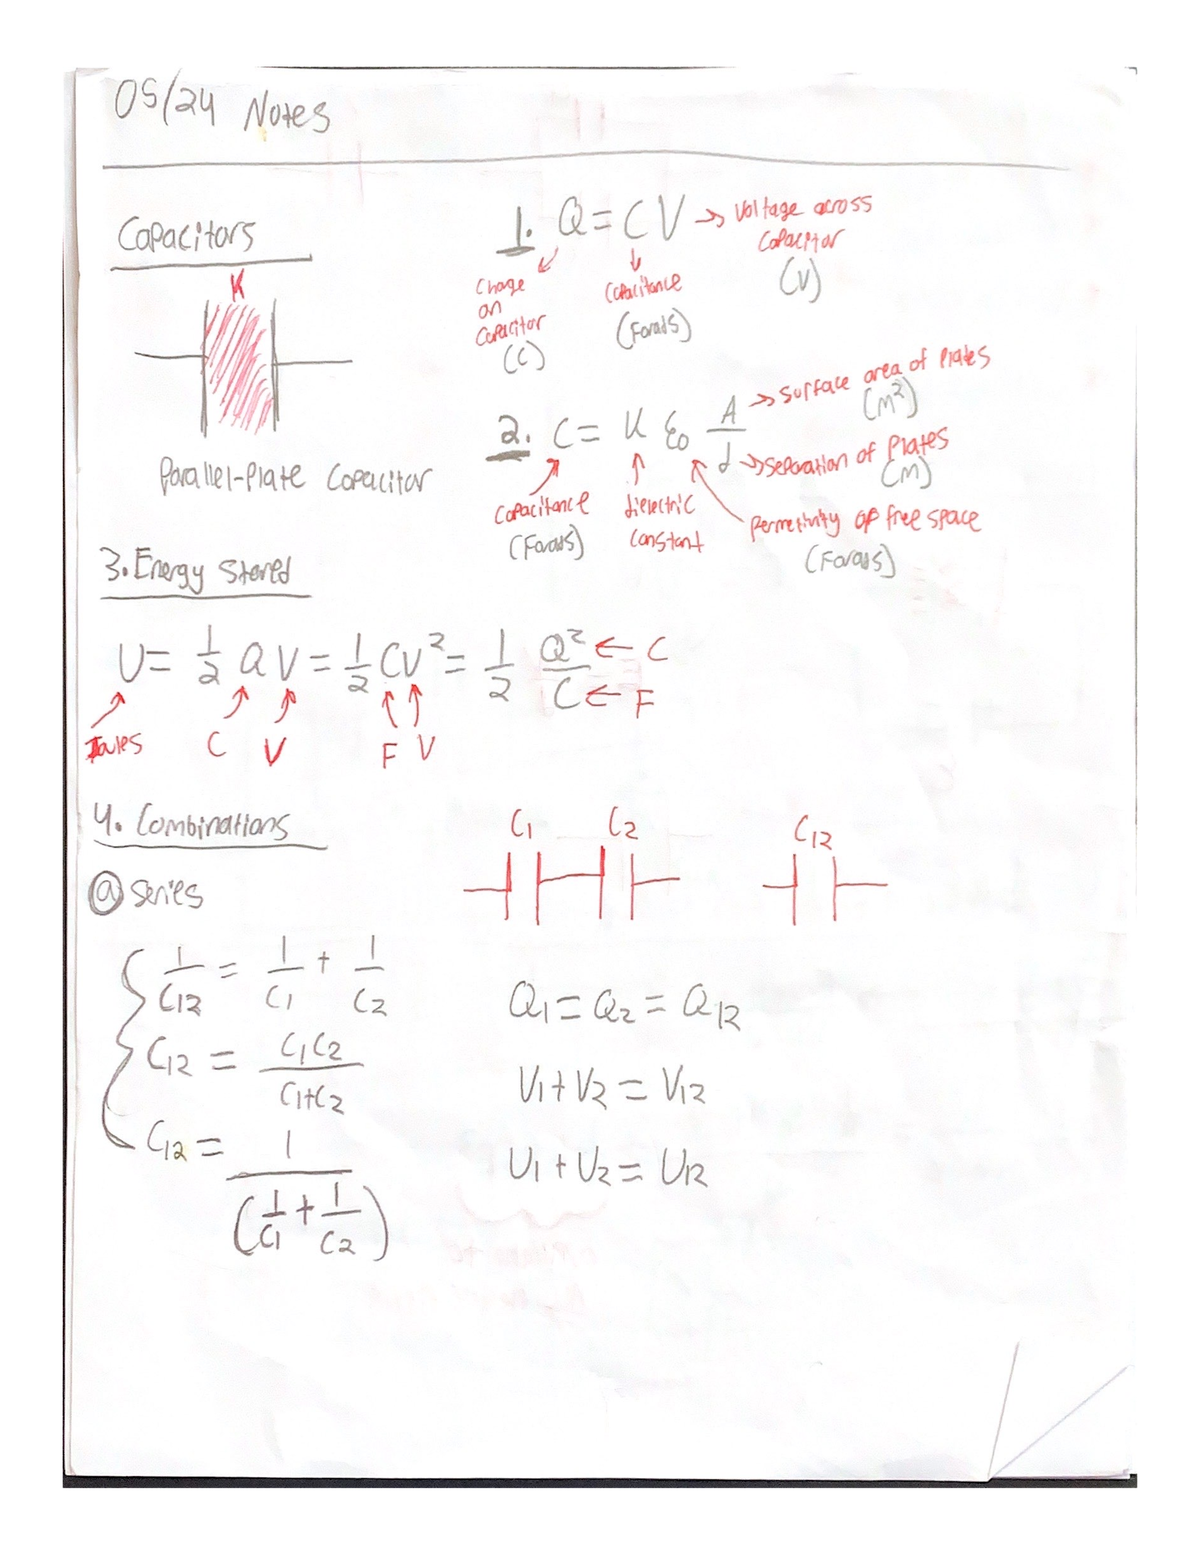 05/24 Notes
Capacitors
K
Parallel-Plate Capacitor
1. Q = CV → Voltage across
Capacitor
(V)
Charge
on
Capacitor
(C)
Capacitance
(Farads)
2. C = K ε₀ A/d
→ Surface area of Plates
(m²)
→ Separation of Plates
(m)
Capacitance
(Farads)
dielectric
constant
Permetivity of free space
(Farads)
3. Energy Stored
U = 1/2 QV = 1/2 CV² = 1/2 Q²/C
← C
← F
Joules C V F V
4. Combinations
C₁ C₂ C₁₂
ⓐ Series
1/C₁₂ = 1/C₁ + 1/C₂
C₁₂ = C₁C₂/C₁+C₂
C₁₂ = 1/(1/C₁ + 1/C₂)
Q₁ = Q₂ = Q₁₂
V₁ + V₂ = V₁₂
U₁ + U₂ = U₁₂